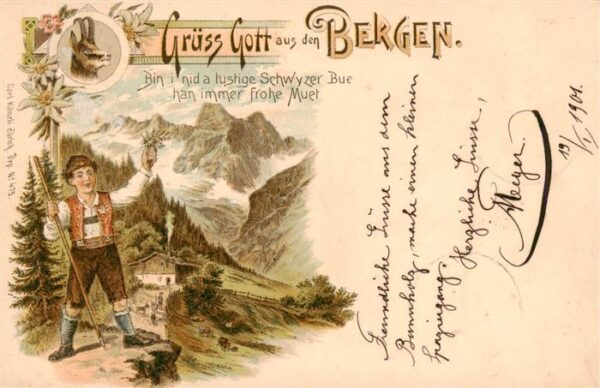 Grüss Gott aus den BERGEN.
Bin i nid a lustige Schwyzer Bue
han immer frohe Muet.
Carl Künzli Zürich, Dep. No. 475.
Freundliche Grüsse aus dem
mache einen kleinen
Spaziergang.
Herzliche Grüsse,
Meyer.
19/I. 1901.